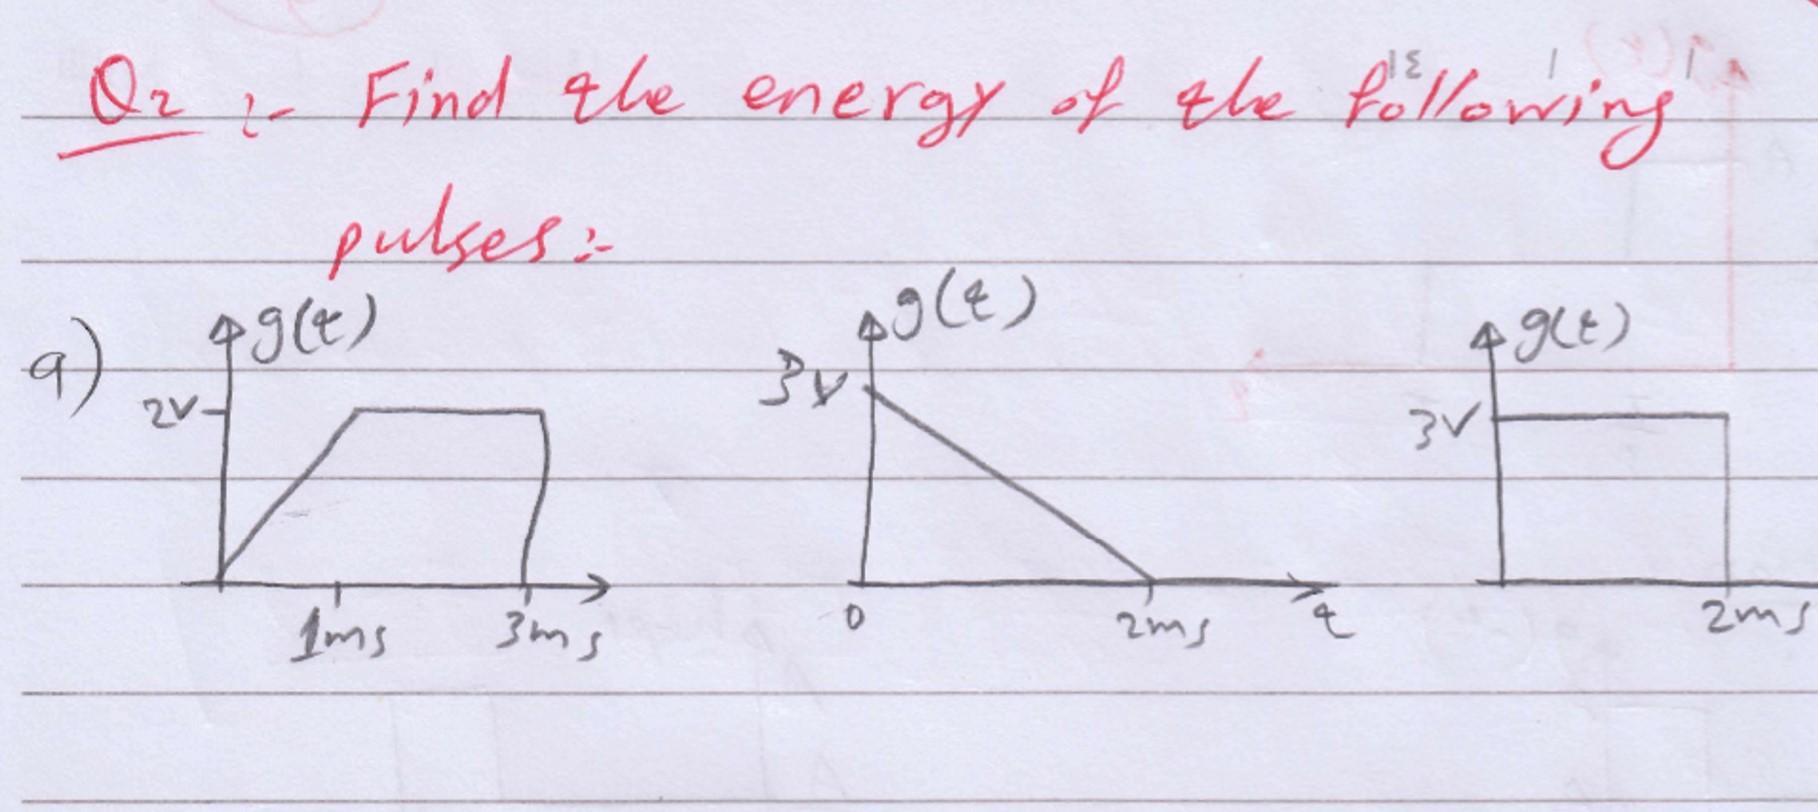 Q2 :- Find the energy of the following
pulses :-
a)
g(t)
2V
1ms 3ms
g(t)
3V
0 2ms t
g(t)
3V
2ms